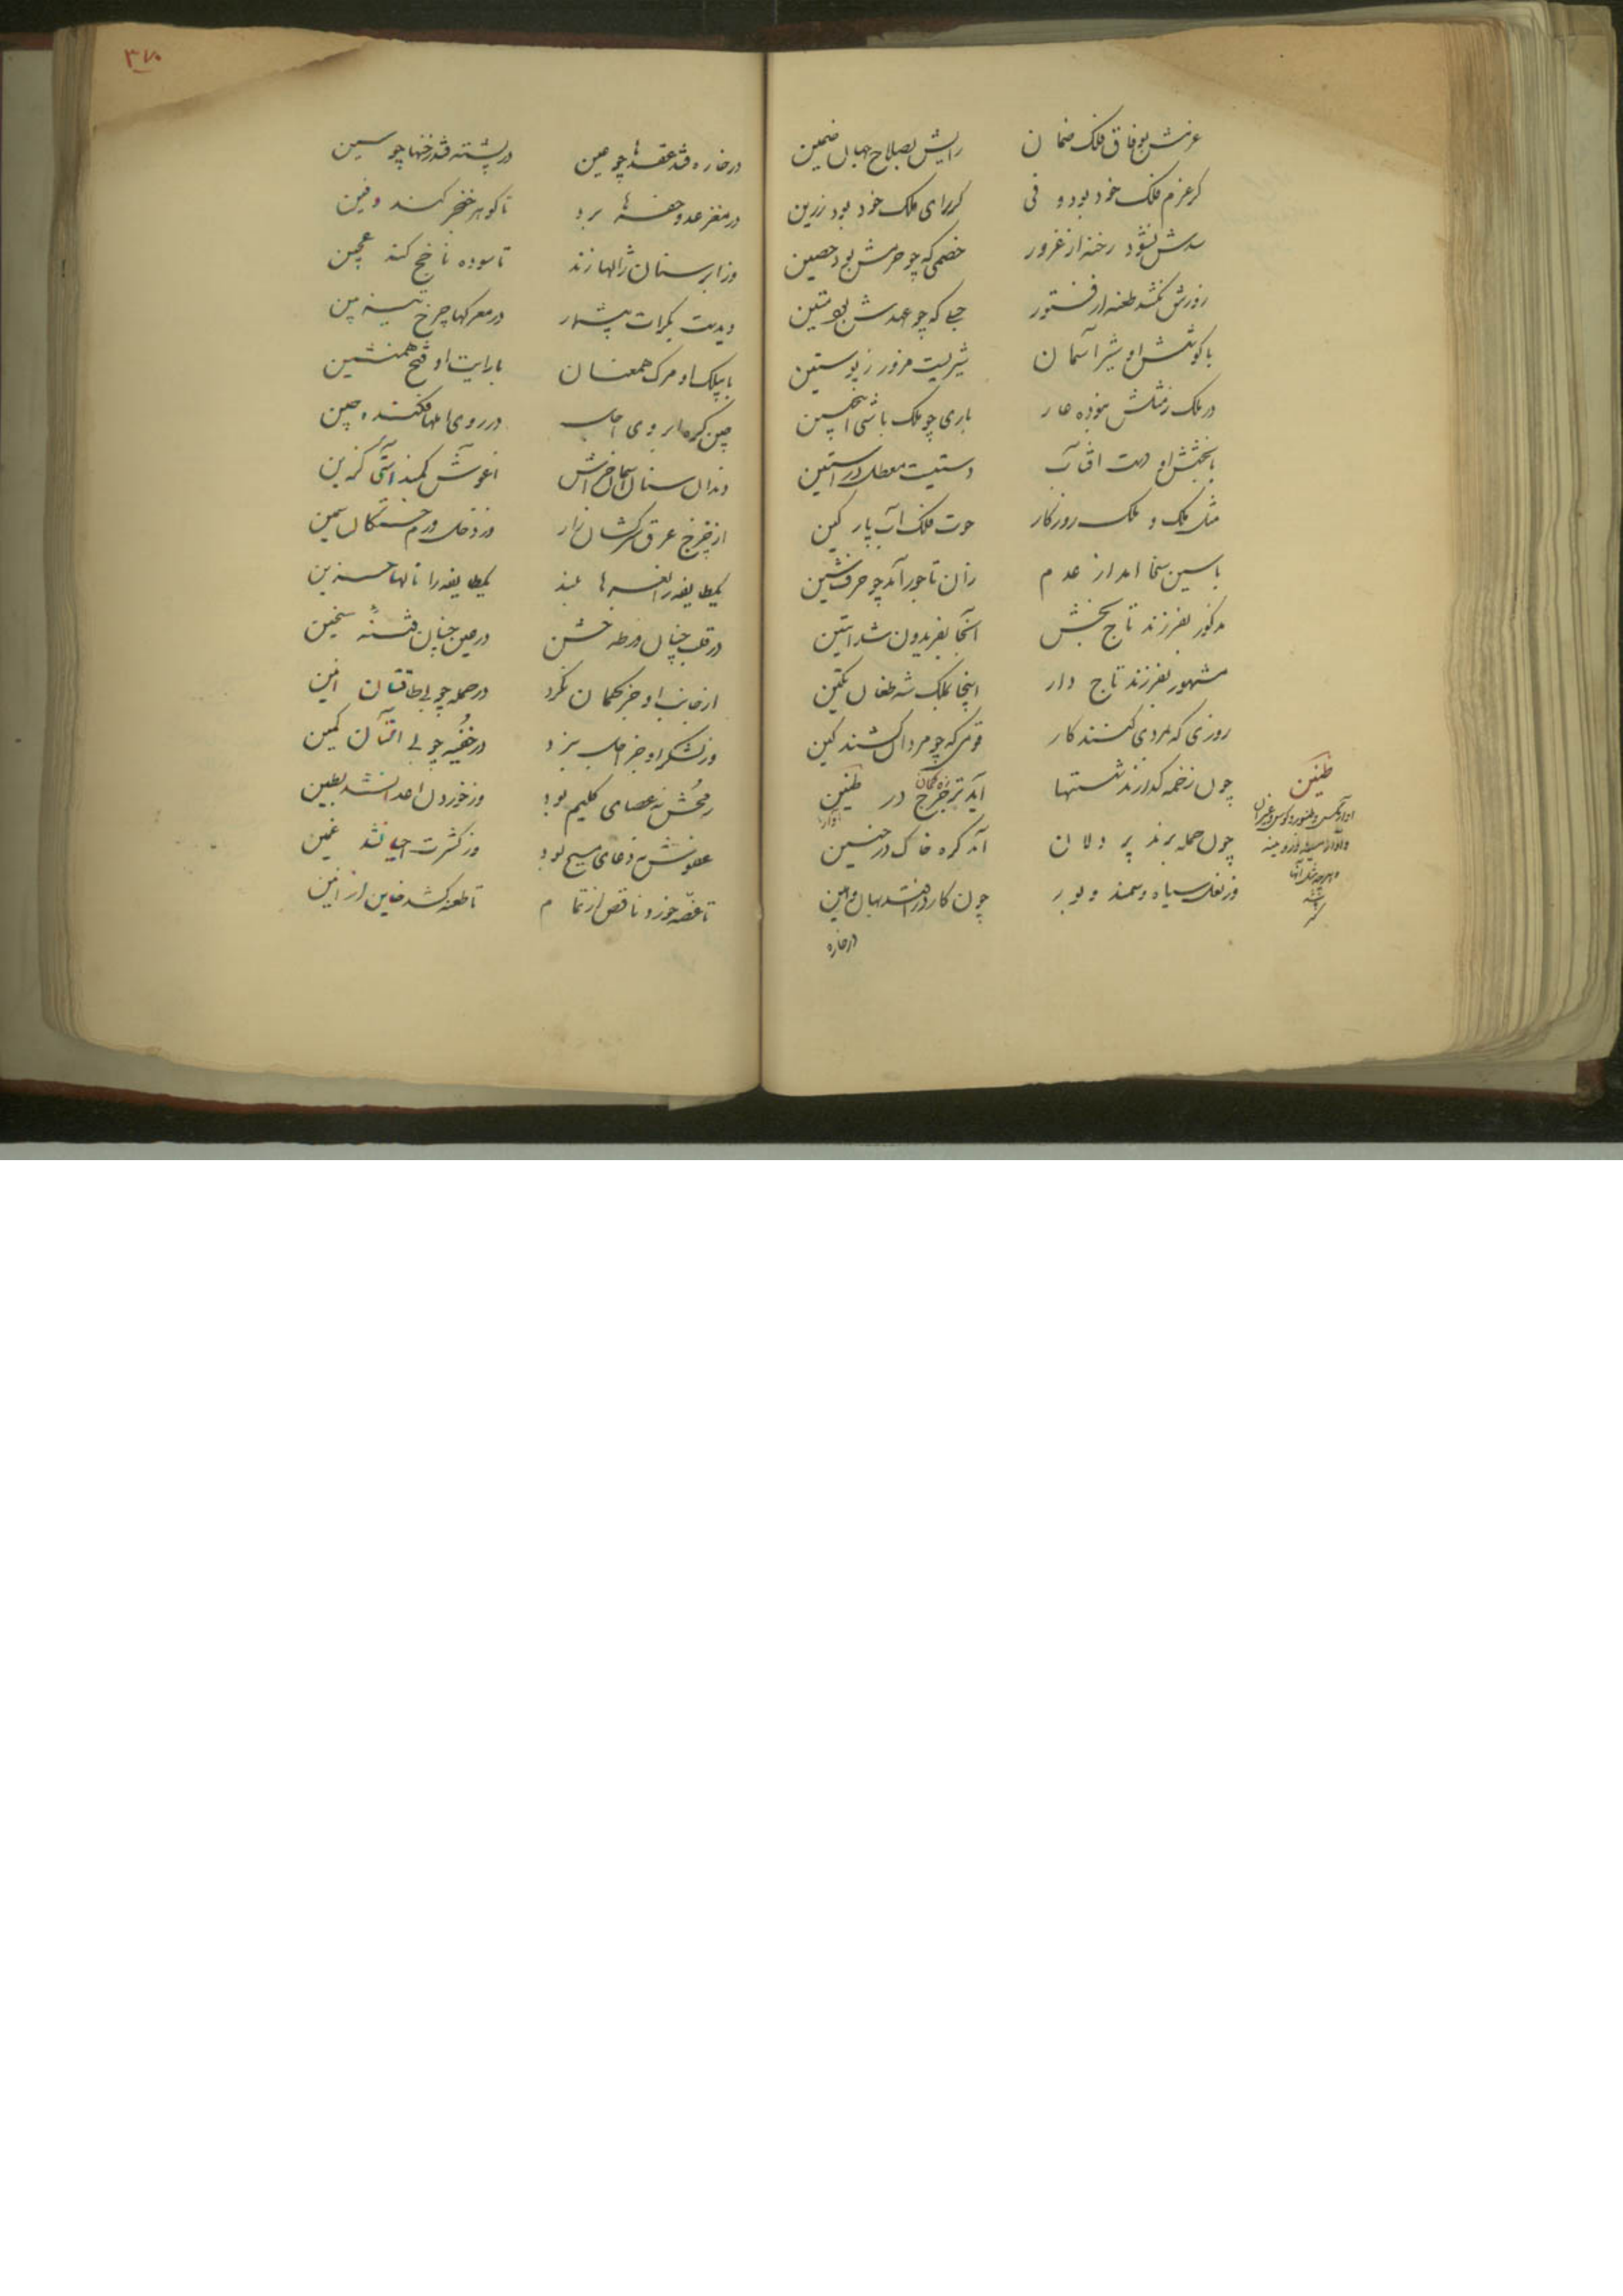 عزمش بوفاق فلک ضمان رایش بصلاح جهان ضمین
کر عزم فلک خود بود وفی کر رای ملک خود بود رزین
سدش نشود رخنه از غرور خصمی که چو حزمش بود حصین
زورش نکشد طعنه از فتور حبلی که چو عهدش بود متین
با کوشش او شیر آسمان شیریست مزور ز پوستین
در ملک زمثلش نبوده عار باری چو ملک باشی اینچنین
با بخشش او دست افتاب دستیست معطل در استین
مثل ملک و ملک روزکار حوت فلک و آب پارکین
با سین سخا امد از عدم زان تاجور آمد چو حرف شین
مذکور بفرزند تاج بخش آنجا بفریدون شد ابتین
مشهور بفرزند تاج دار اینجا بملک شه طغان تکین
روزی که بمردی کنند کار قومی که چو مردان کشند کین
چون زخمه کذارند شستها آید تره چرخ در طنین
چون حمله برند پر دلان آمد کره خاک در حنین
وز نعل سیاه و سمند و بور چون کارد در افتد بهان وهین
طنین
درخاره
۳۷۰
درخاره فتد عقدها چو عین در پشته فتد رخنها چو سین
در مغز عدو حفرها برد تا کوهر خنجر کند دفین
وز ابر سنان ژالها زند تا سوده ناخج کند عجین
دیدست بکرات بیشمار در معرکها چرخ تیزبین
با بیلک او مرک همعنان با رایت او فتح همنشین
چین کره ابروی اجل در روی املها فکنده چین
دندان سنان آسمان خراش اغوش کمند آشتی کزین
از چرخ عرق سرکشان نزار وز دخل ورم خستکان سمین
یکطایفه را نعرها بلند یکطایفه را نالها حزین
در قلب چنان ورطه خشن در عین چنان فتنه سخین
از جانب او جز کمان نکرد در حمله چو بی طاقتان انین
وز لشکر او جز اجل نبرد در خفیه چو بی آلتان کمین
رمحش نه عصای کلیم بود وز خوردن اعدا نشد بطین
عفوش نه دعای مسیح بود وز کثرت احیا نشد غبین
تا غصه خورد ناقص از تمام تا طعنه کشد خاین از امین